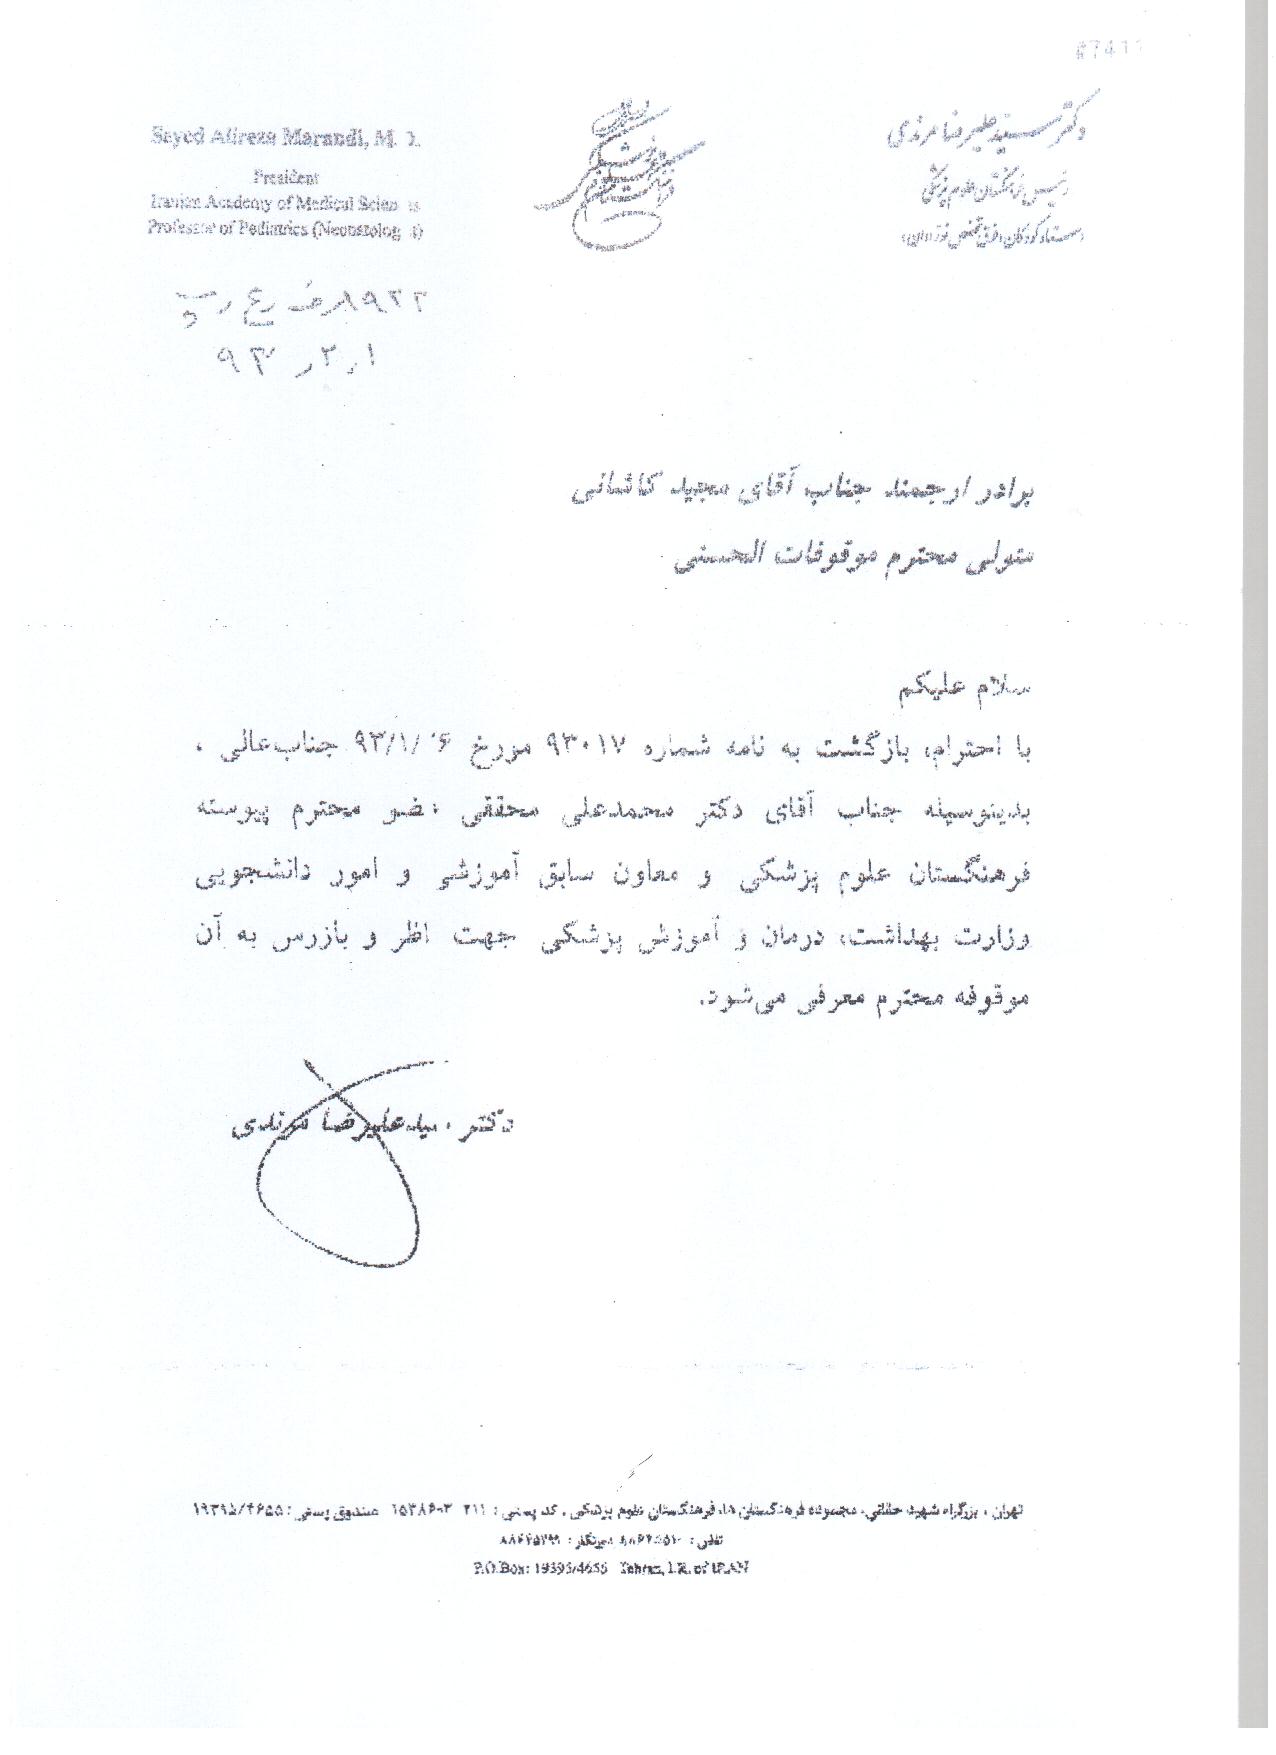 دکتر سید علیرضا مرندی
رئیس فرهنگستان علوم پزشکی
Seyed Alireza Marandi, M.
President
Iranian Academy of Medical
Professor of Pediatrics
برادر ارجمند جناب آقای مجید کاشانی
متولی محترم موقوفات الحسنی
سلام علیکم
با احترام، بازگشت به نامه شماره ۹۳۰۱۷ مورخ جناب‌عالی ،
بدینوسیله جناب آقای دکتر محمدعلی محققی عضو محترم پیوسته
فرهنگستان علوم پزشکی و معاون سابق آموزشی و امور دانشجویی
وزارت بهداشت، درمان و آموزش پزشکی جهت و بازرس به آن
موقوفه محترم معرفی می‌شود.
دکتر سید علیرضا مرندی
تهران ، بزرگراه شهید حقانی، مجموعه فرهنگستان ها، فرهنگستان علوم پزشکی ، کد پستی : صندوق پستی : ۱۹۳۹۵/۴۶۵۵
تلفن : دورنگار :
P.O.Box: 19395/4655 Tehran, I.R. of IRAN